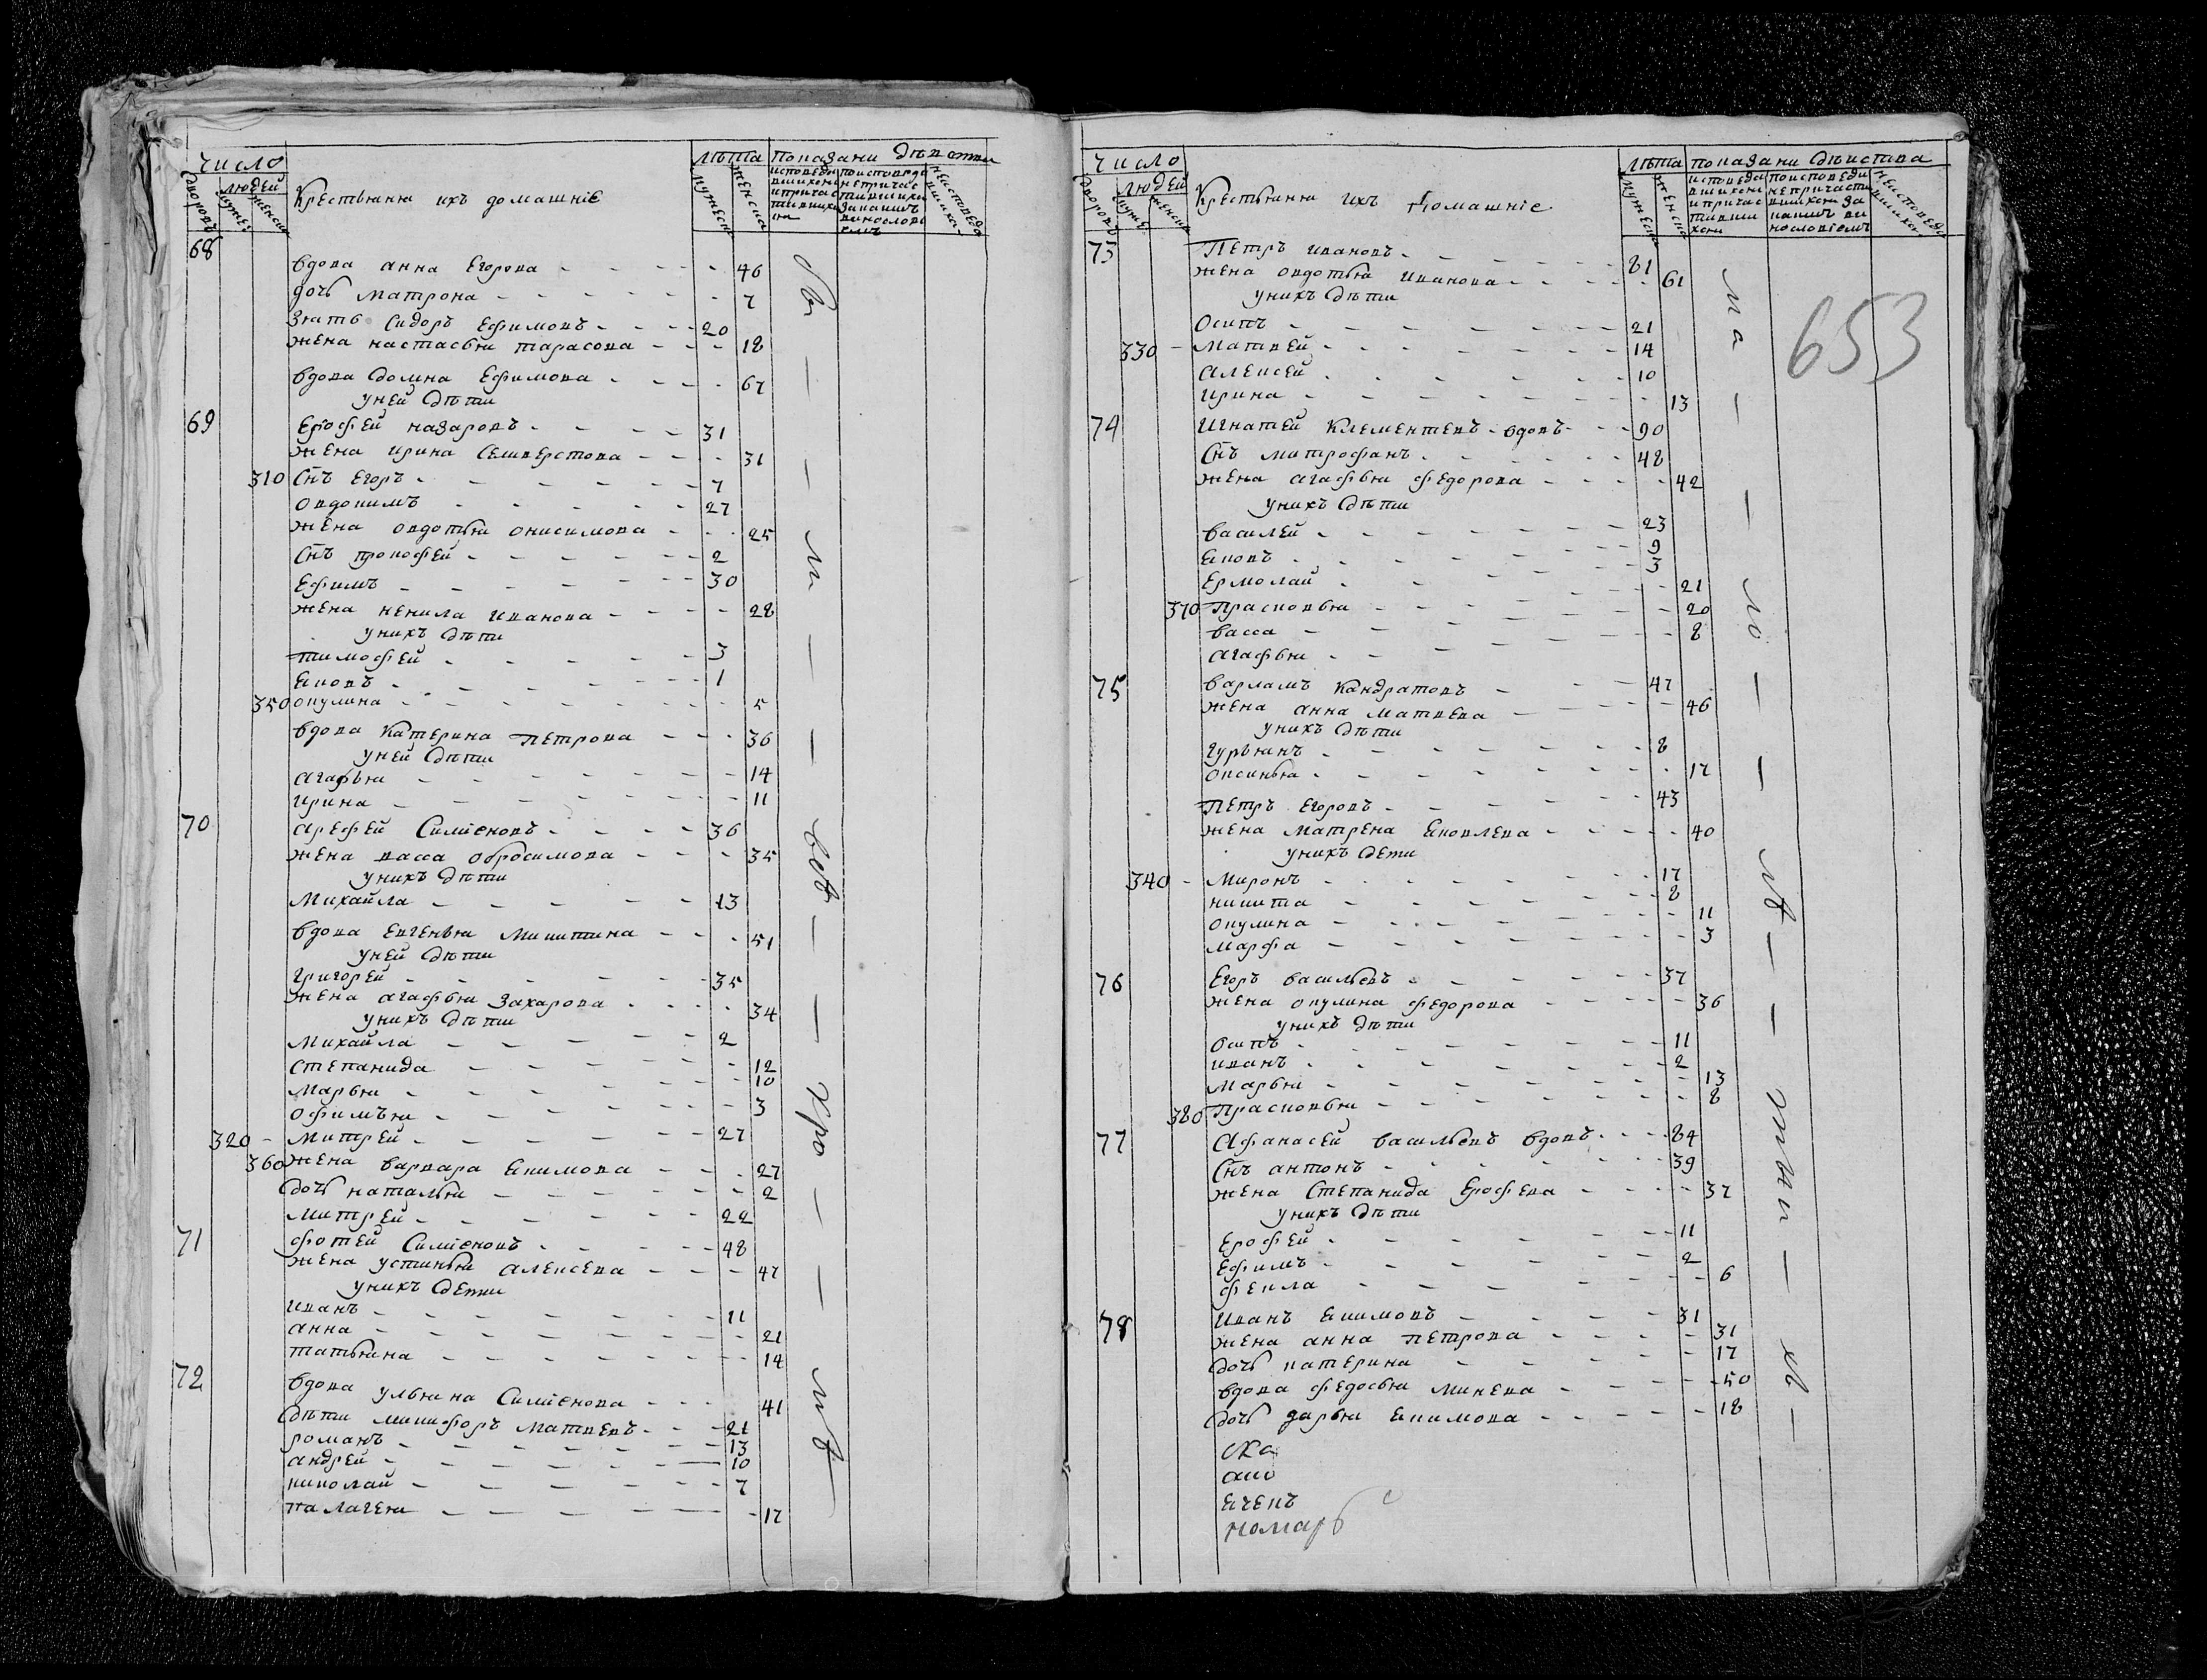 число
людей
дворовъ
мужес
женска
Крестьяня ихъ домашніе
лѣта
мужеска
женска
показани дѣвствы
68
вдова анна Егорова 46
дочь матрона 7
Зять Сидоръ Ефимовъ 20
жена настасья тарасова 18
вдова домна Ефимова 67
уней дѣти
69 Ерофей назаровъ 31
жена ирина Селиверстова 31
310 Снъ Егоръ 7
овдокимъ 27
жена овдотья онисимова 25
Снъ прокофей 2
Ефимъ 30
жена ненила иванова 28
унихъ дѣти
тимофей 3
яковъ 1
350 окулина 5
вдова катерина петрова 36
уней дѣти
агафья 14
ирина 11
70 арефей Симіеновъ 36
жена васса обросимова 35
унихъ дѣти
михайла 13
вдова евгенья микитина 51
уней дѣти
григорей 35
жена агафья захарова 34
унихъ дѣти
михайла 2
степанида 12
марья 10
офимья 3
320 митрей 27
360 жена варвара якимова 27
дочь наталья 2
митрей 22
71 фотей Симіеновъ 48
жена устинья алексева 47
унихъ дети
иванъ 11
анна 21
татьяна 14
72 вдова ульяна Симіенова 41
дѣти микифоръ матвевъ 21
романъ 13
андрей 10
николай 7
палагея 17
число
людей
дворовъ
мужес
женска
Крестьяня ихъ домашніе
лѣта
мужеска
женска
показани дѣиства
653
73 Петръ ивановъ 81
жена овдотья иванова 61
унихъ дѣти
осипъ 21
330 матвей 14
алексей 10
ирина 13
74 игнатей клементевъ вдовъ 90
Снъ митрофанъ 48
жена агафья федорова 42
унихъ дѣти
василей 23
яковъ 9
ермолай 3
370 прасковья 21
васса 20
агафья 8
75 варламъ кандратовъ 47
жена анна матвева 46
унихъ дѣти
гурьянъ 8
оксинья 17
петръ егоровъ 43
жена матрена яковлева 40
унихъ дети
340 миронъ 17
никита 8
окулина 11
марфа 3
76 Егоръ васильевъ 37
жена окулина федорова 36
унихъ дѣти
осипъ 11
иванъ 2
марья 13
380 прасковья 8
77 Афанасей васильевъ вдовъ 84
Снъ антонъ 39
жена Степанида Ерофева 37
унихъ дѣти
ерофей 11
ефимъ 2
фекла 6
78 иванъ якимовъ 31
жена анна петрова 31
дочь катерина 17
вдова федосья минева 50
дочь дарья якимова 18
ска
ано
ячекъ